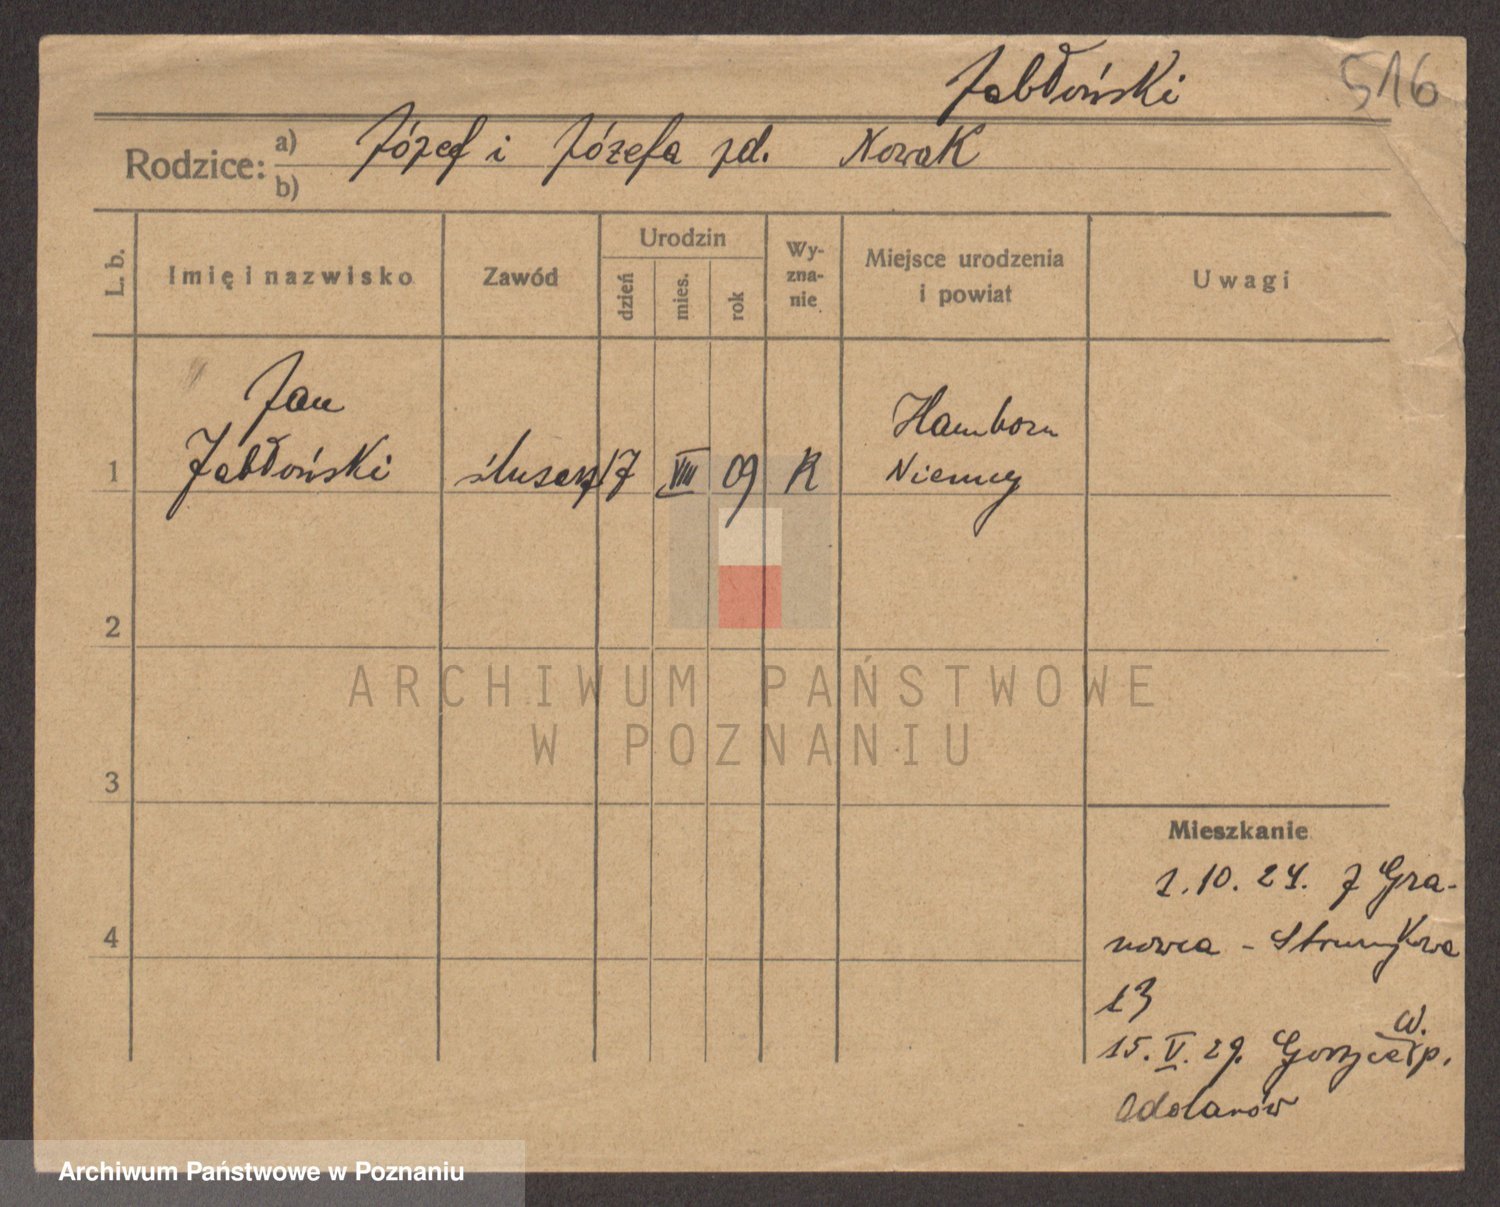 Jabłoński 516
Rodzice: a) Józef i Józefa zd. Nowak
b)
L. b. Imię i nazwisko Zawód Urodzin dzień mies. rok Wy-zna-nie Miejsce urodzenia i powiat Uwagi
Jan Hamborn
1 Jabłoński ślusarz 17 VIII 09 R Niemcy
2
ARCHIWUM PAŃSTWOWE
W POZNANIU
3
Mieszkanie
1.10.24. z Gra-
4
nowca - Strumykowa
13
15. V. 29. Gorzyce w. p.
Odolanów
Archiwum Państwowe w Poznaniu